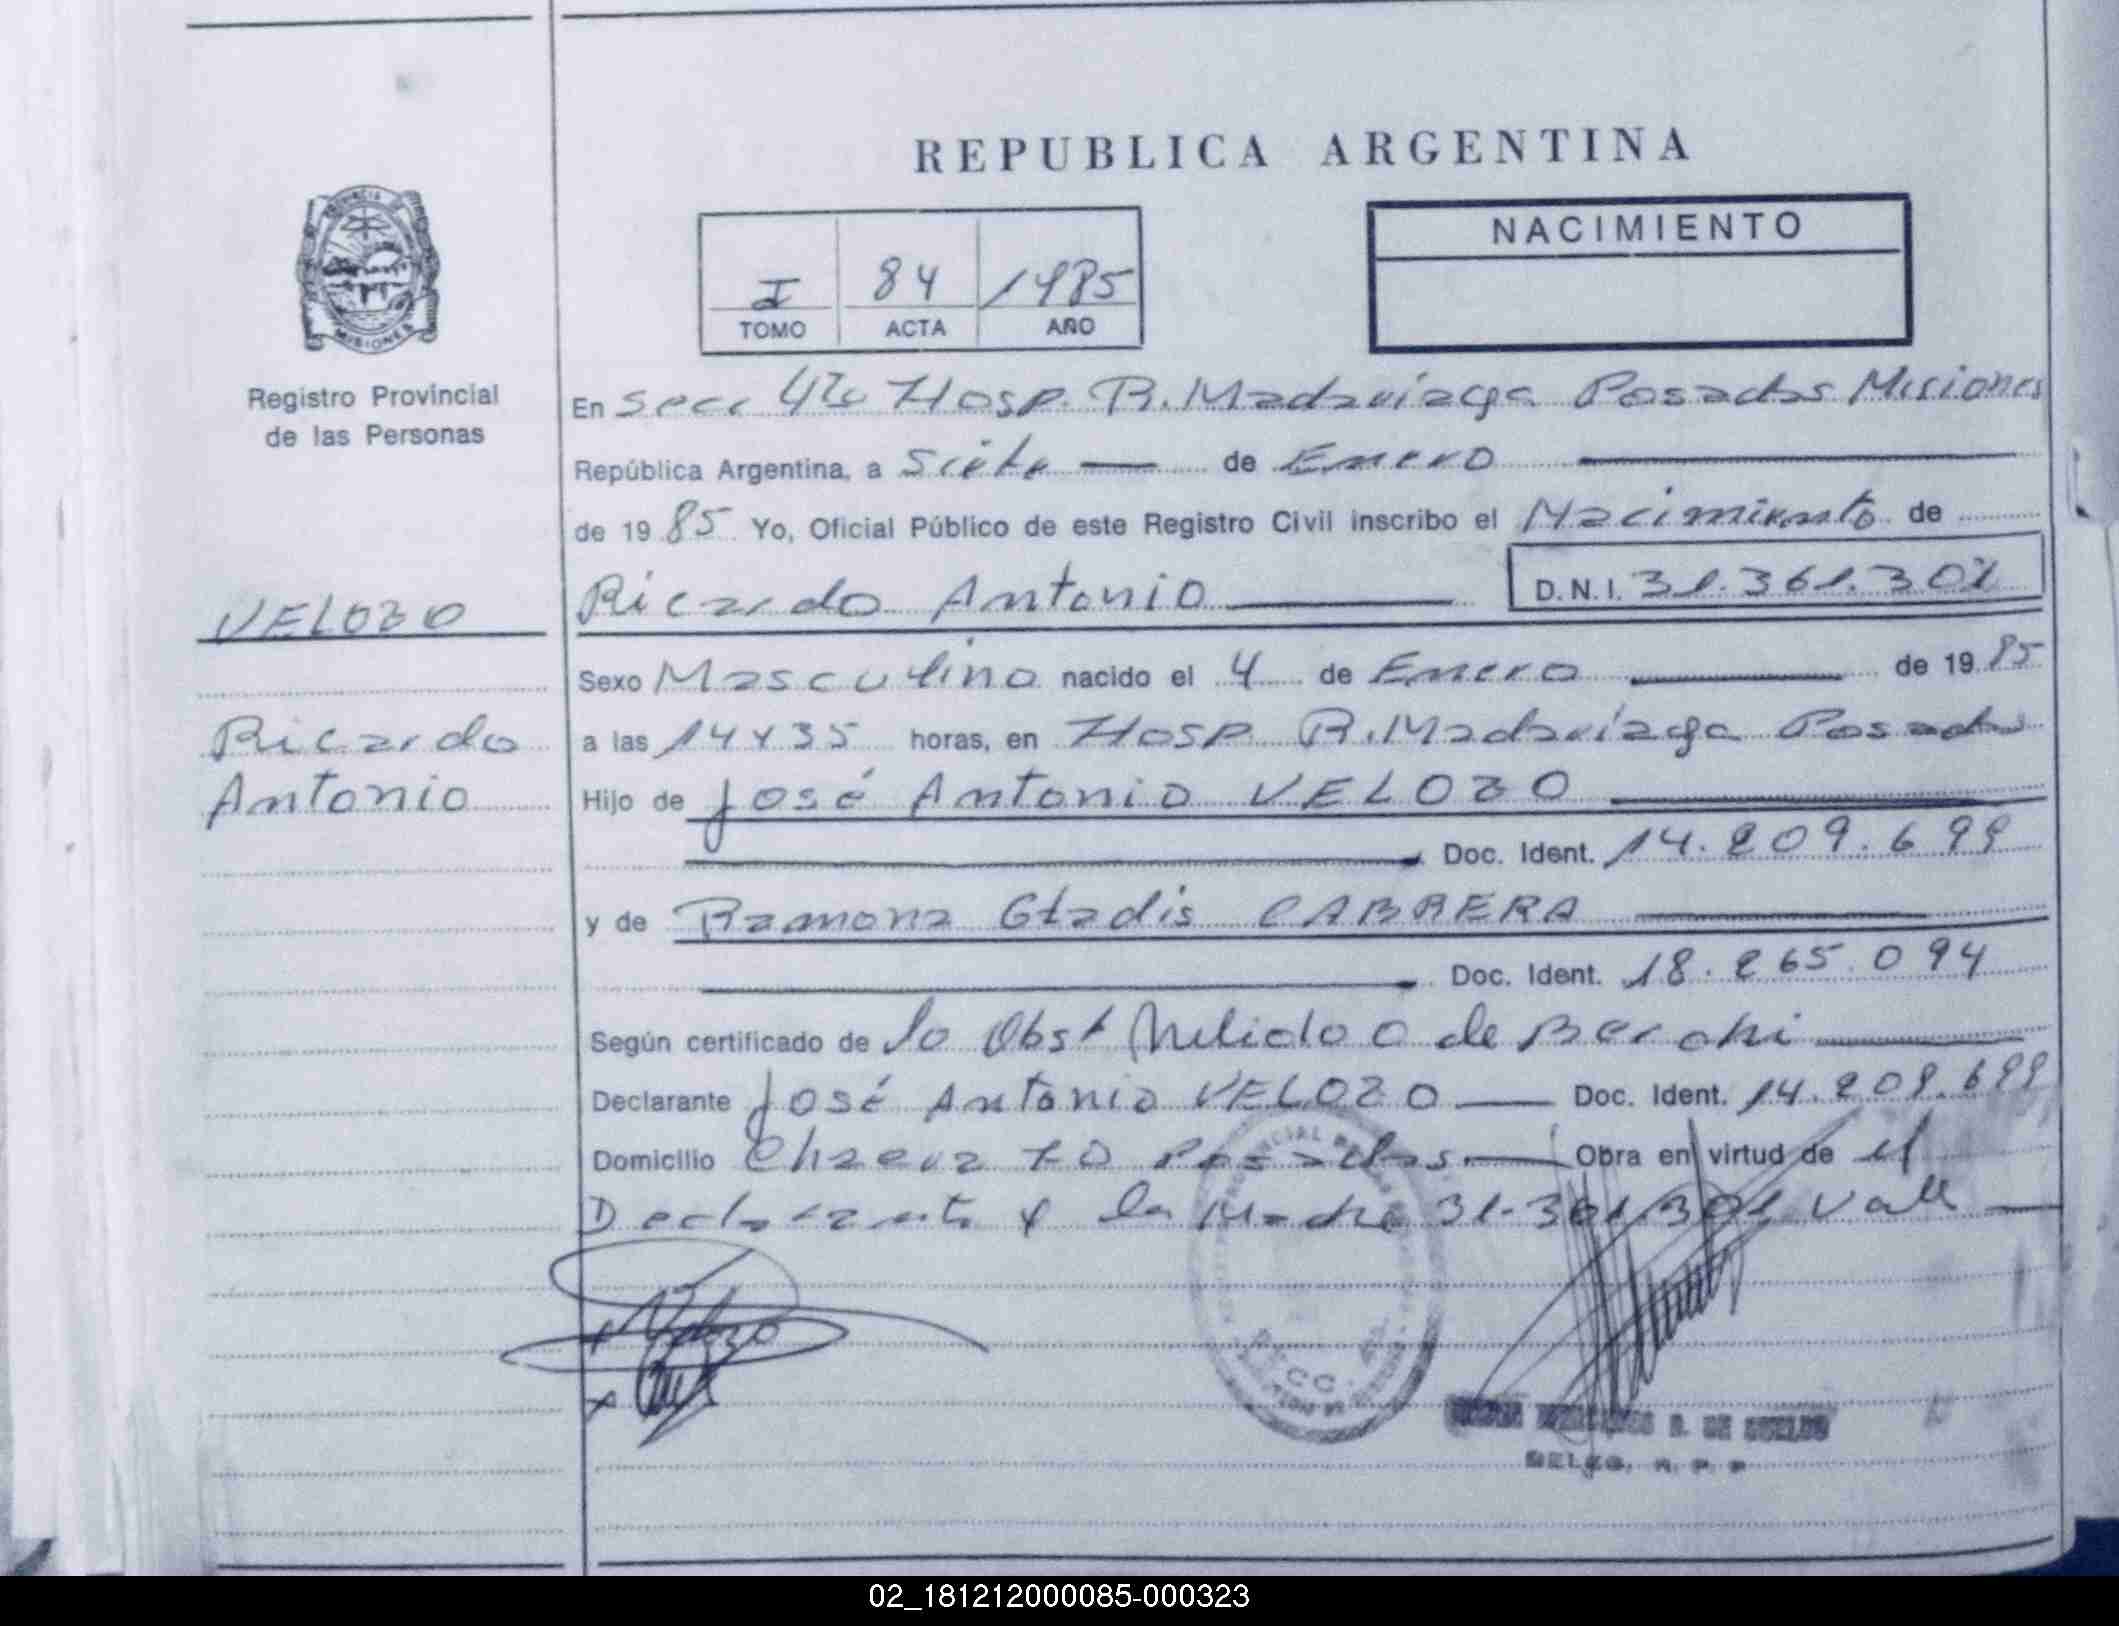 REPUBLICA ARGENTINA
PROVINCIA DE
MISIONES
Registro Provincial
de las Personas
I 84 1985
TOMO ACTA AÑO
NACIMIENTO
En Secc 4ta Hosp. R. Madariaga Posadas Misiones
República Argentina, a Siete de Enero
de 19 85 Yo, Oficial Público de este Registro Civil inscribo el Nacimiento de
VELOZO
Ricardo Antonio D.N.I. 31.361.301
Sexo Masculino nacido el 4 de Enero de 19 85
Ricardo
a las 14 y 35 horas, en Hosp. R. Madariaga Posadas
Antonio
Hijo de José Antonio VELOZO
Doc. Ident. 14.209.699
y de Ramona Gladis CABRERA
Doc. Ident. 18.265.094
Según certificado de la Obst de
Declarante José Antonio VELOZO Doc. Ident. 14.209.699
Domicilio Chacra Posadas. Obra en virtud de el
Declarante y la Madre 31.361.301 Vale
Velozo
DE
DELEG. R. P. P
02_181212000085-000323